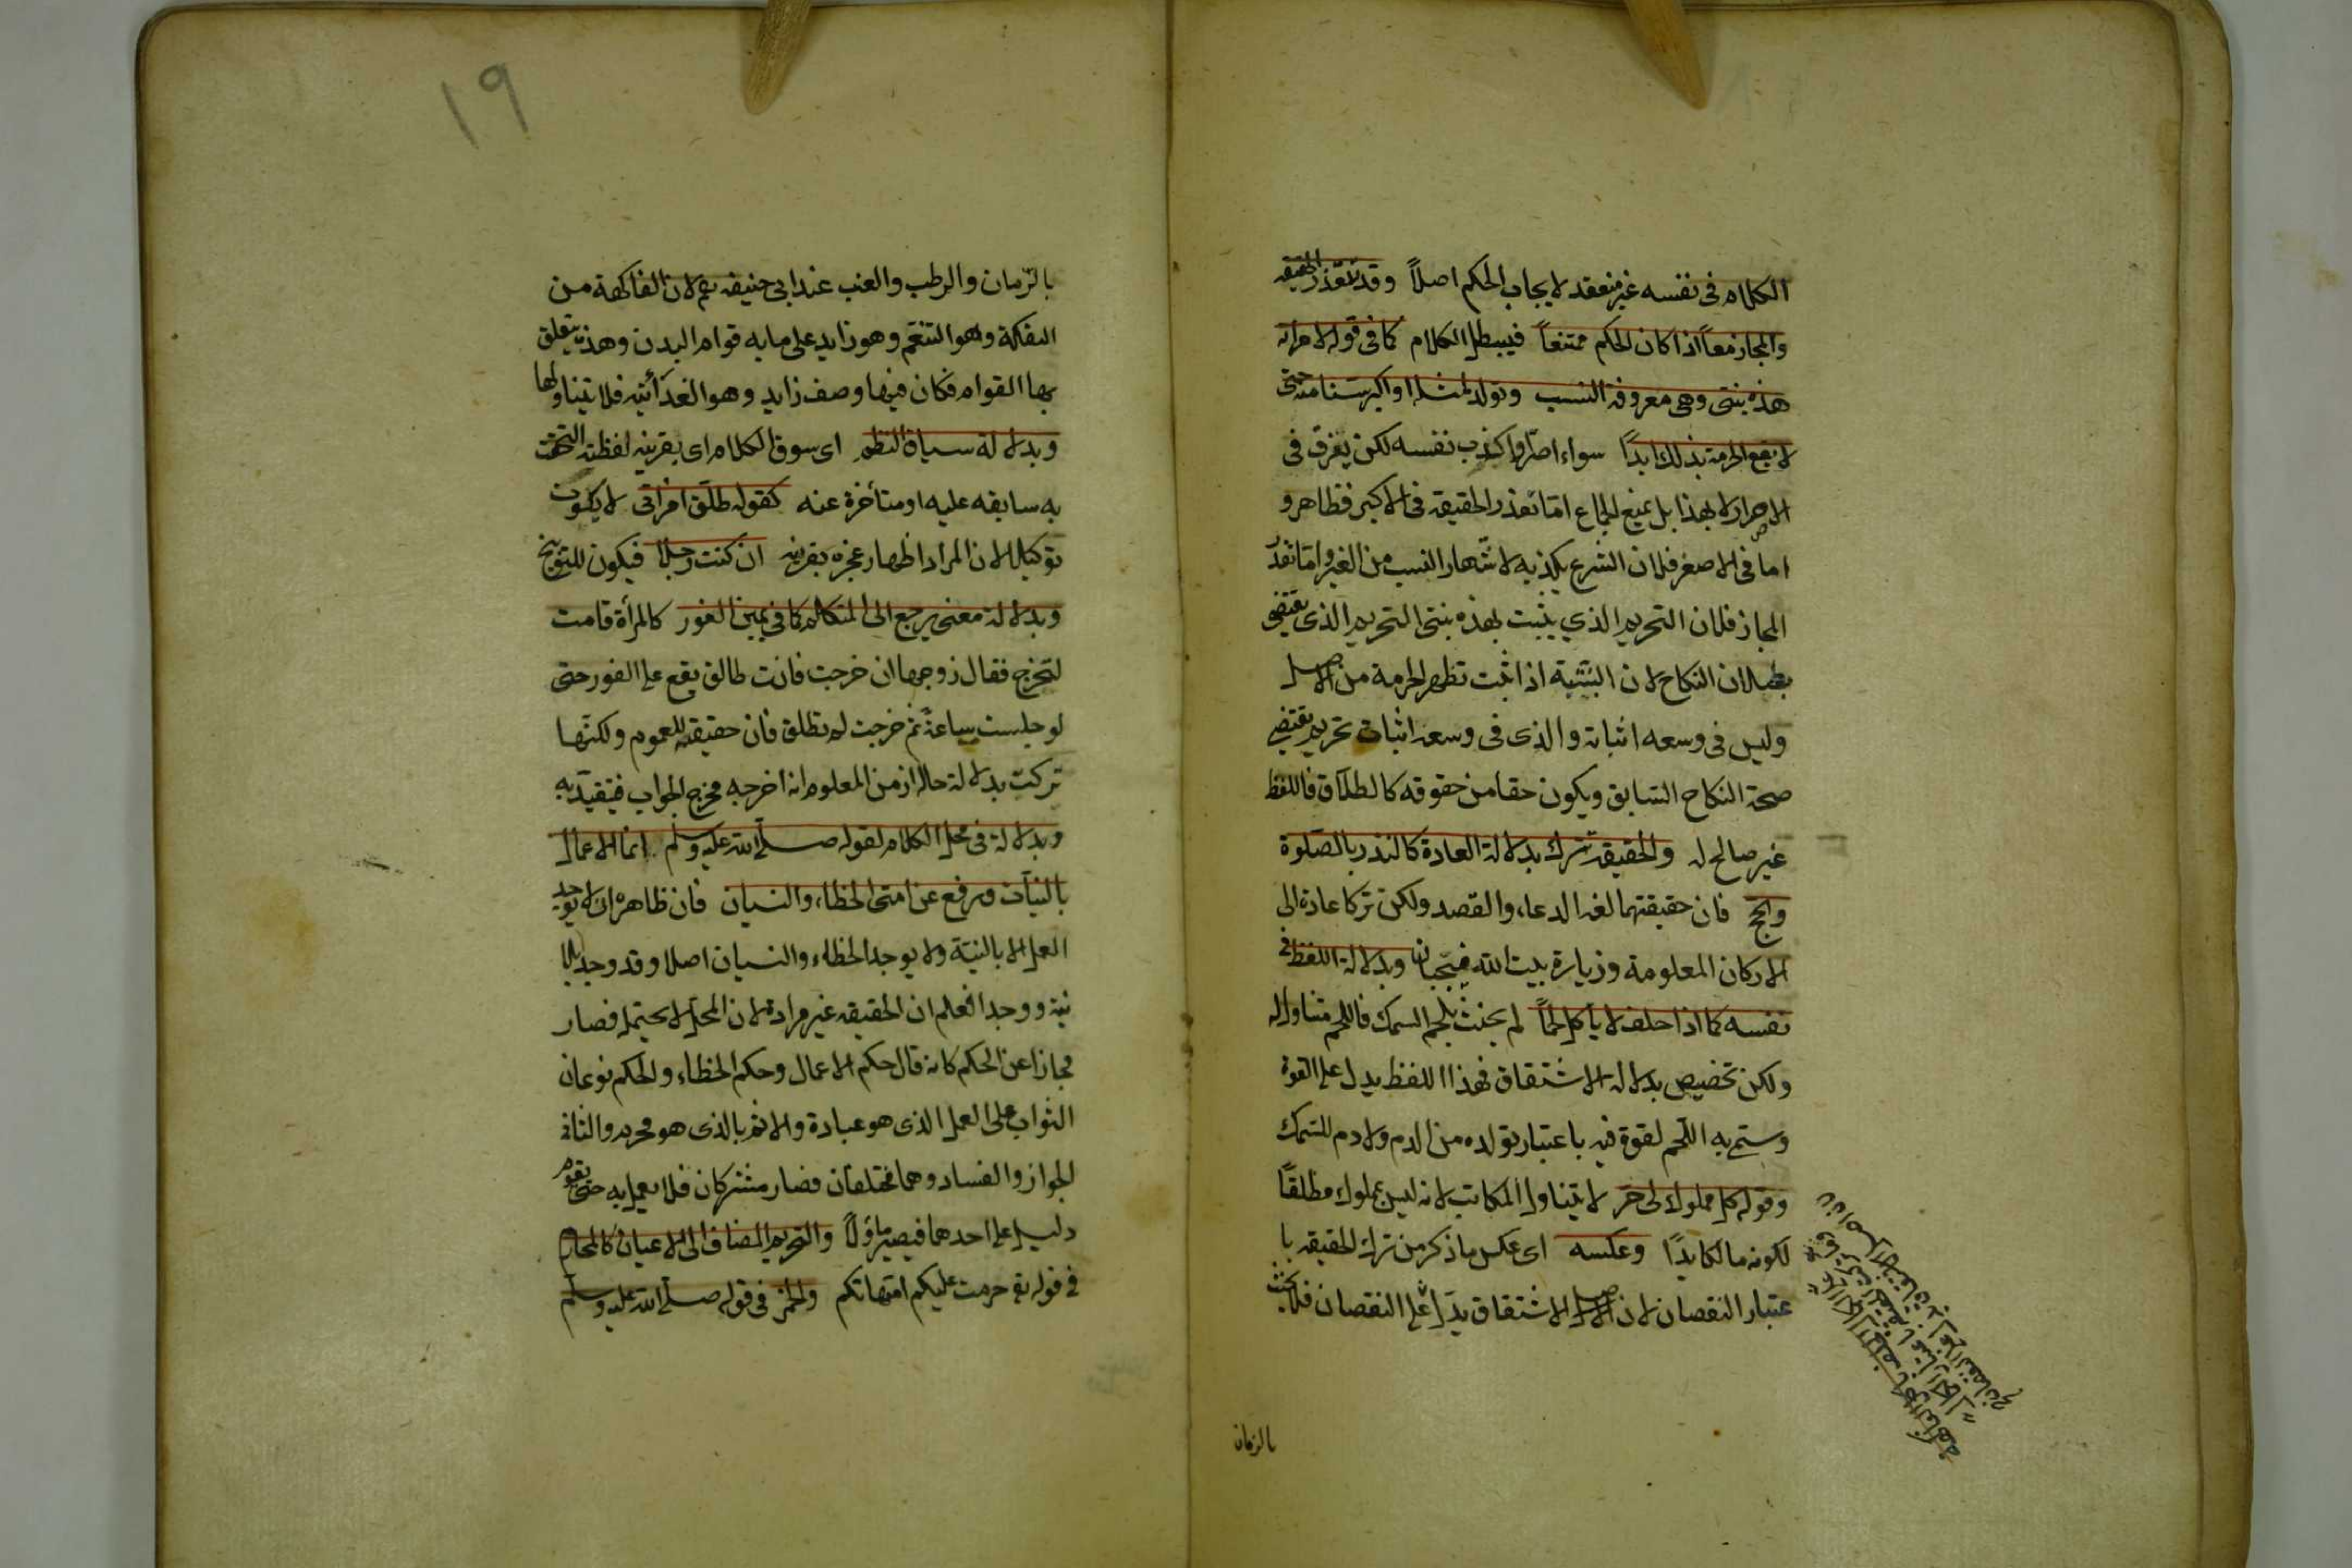 الكلام في نفسه غير منعقد لايجاب الحكم اصلاً وقد تتعذر الحقيقة
والمجاز معاً اذا كان الحكم ممتنعاً فيبطل الكلام كما في قوله لامرأته
هذه بنتي وهي معروفة النسب وتولد لمثله او اكبر سنا منه حتى
لا يقع الحرمة بذلك ابدًا سواء اصرّ او اكذب نفسه لكن يفرق في
الاصرار لا لهذا بل لمنع الجماع امّا تعذر الحقيقة في الاكبر فظاهر و
اما في الاصغر فلان الشرع يكذبه لاشتهار النسب من الغير وامّا تعذر
المجاز فلان التحريم الذي يثبت بهذه بنتي التحريم الذي يقتضي
بطلان النكاح لان البنتية اذا ثبت تظهر الحرمة من الاصل
وليس في وسعه اثباته والذي في وسعه اثبات تحريم يقتضي
صحة النكاح السّابق ويكون حقا من حقوقه كالطلاق فاللفظ
غير صالح له والحقيقة تترك بدلالة العادة كالنذر بالصلوة
والحج فان حقيقتهما لغة الدعاء والقصد ولكن تركا عادة الى
الاركان المعلومة وزيارة بيت الله فيجبان وبدلالة اللفظ في
نفسه كما اذا حلف لا يأكل لحماً لم يحنث بلحم السمك فاللحم متناول له
ولكن تخصيص بدلالة الاشتقاق فهذا اللفظ يدل على القوة
وسمّي به اللّحم لقوة فيه باعتبار تولده من الدم ولا دم للسّمك
وقوله كل مملوك لى حرّ لا يتناول المكاتب لانه ليس بمملوك مطلقاً
لكونه مالكا يدًا وعكسه اى عكس ما ذكر من ترك الحقيقة با
عتبار النقصان لان الاصل الاشتقاق يدلّ على النقصان فلا يحنث
بالرمان
١٩
بالرّمان والرطب والعنب عند ابى حنيفة رحم لان الفاكهة من
التفكه وهو التنعّم وهو زايد على ما به قوام البدن وهذه يتعلق
بها القوام فكان فيها وصف زايد وهو الغذائية فلا يتناولها
وبدلالة سياق النظم اى سوق الكلام اى بقرينة لفظية التحقت
به سابقه عليه او متأخرة عنه كقوله طلّق امرأتي لا يكون
توكيلا لان المراد اظهار عجزه بقرينة ان كنت رجلا فيكون للتوبيخ
وبدلالة معنى يرجع الى المتكلم كما في يمين الفور كالمرأة قامت
لتخرج فقال زوجها ان خرجت فانت طالق يقع على الفور حتى
لو جلست ساعة ثم خرجت لم تطلق فان حقيقته للعموم ولكنّها
تركت بدلالة حاله اذ من المعلوم انه اخرجه مخرج الجواب فيتقيّد به
وبدلالة في محل الكلام لقوله صلى الله عليه وسلم انما الاعمال
بالنيات ورفع عن امتى الخطاء والنسيان فان ظاهره ان لا يوجد
العمل الا بالنيّة ولا يوجد الخطاء والنسيان اصلا وقد وجد بلا
نية ووجدا فعلم ان الحقيقة غير مرادة لان المحل لا يحتمله فصار
مجازا عن الحكم كانه قال حكم الاعمال وحكم الخطاء والحكم نوعان
الثواب على العمل الذى هو عبادة والاثم بالذى هو محرم والثاني
الجواز والفساد وهما مختلفان فصار مشتركان فلا يعمل به حتى يقوم
دليل على احدهما فيصير مأوّلاً والتحريم المضاف الى الاعيان كالمحارم
في قوله تع حرمت عليكم امهاتكم والخمر في قوله صلى الله عليه وسلم